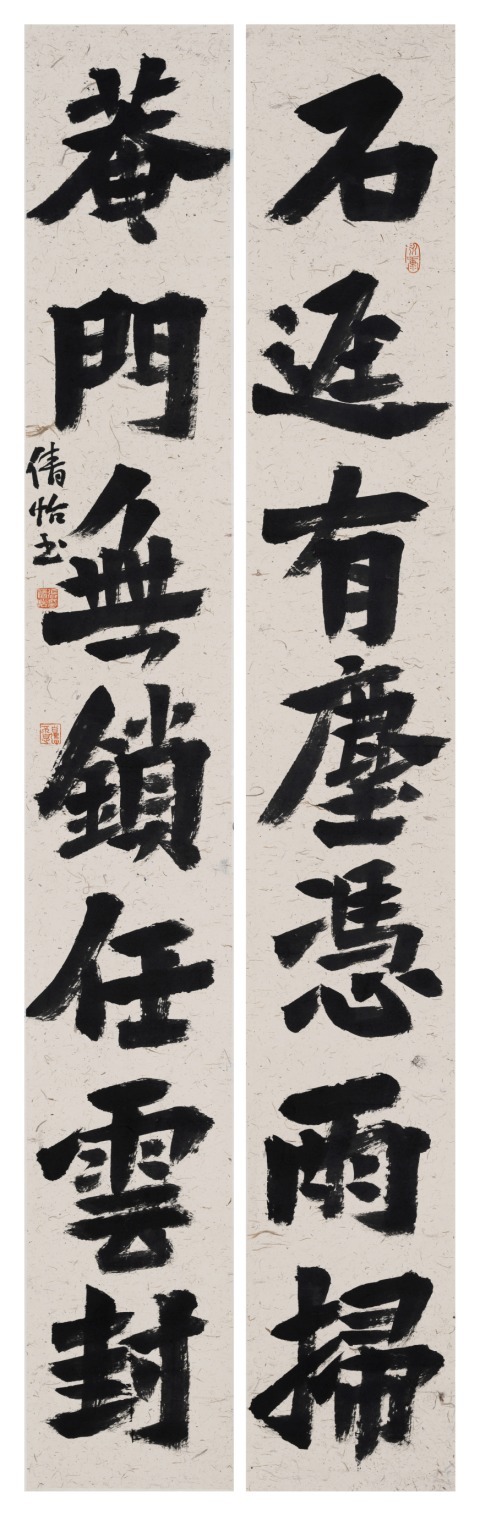 石逕有塵憑雨掃
菴門無鎖任雲封
倩怡书